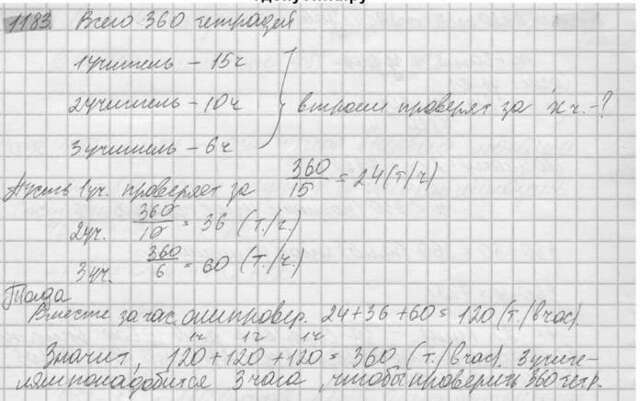 1183. Всего 360 тетрадей
1 учитель – 15ч
2 учитель – 10ч
3 учитель – 6ч
втроем проверят за x ч. – ?
Пусть 1 уч. проверяет за 360/15 = 24 (т/ч)
2 уч. 360/10 = 36 (т./ч.)
3 уч. 360/6 = 60 (т./ч.)
Тогда
Вместе за час они провер. 24+36+60 = 120 (т./в час).
1ч 1ч 1ч
Значит, 120+120+120 = 360 (т./в час). 3 учите-
лям понадобится 3 часа, чтобы проверить 360 тетр.